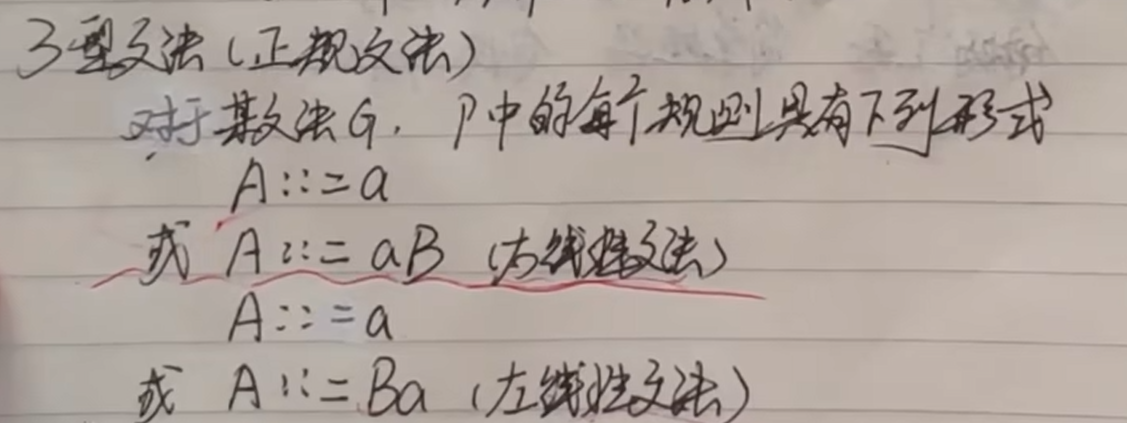 3型文法(正规文法)
对于某文法G, P中的每个规则具有下列形式
A::=a
或 A::=aB (右线性文法)
A::=a
或 A::=Ba (左线性文法)